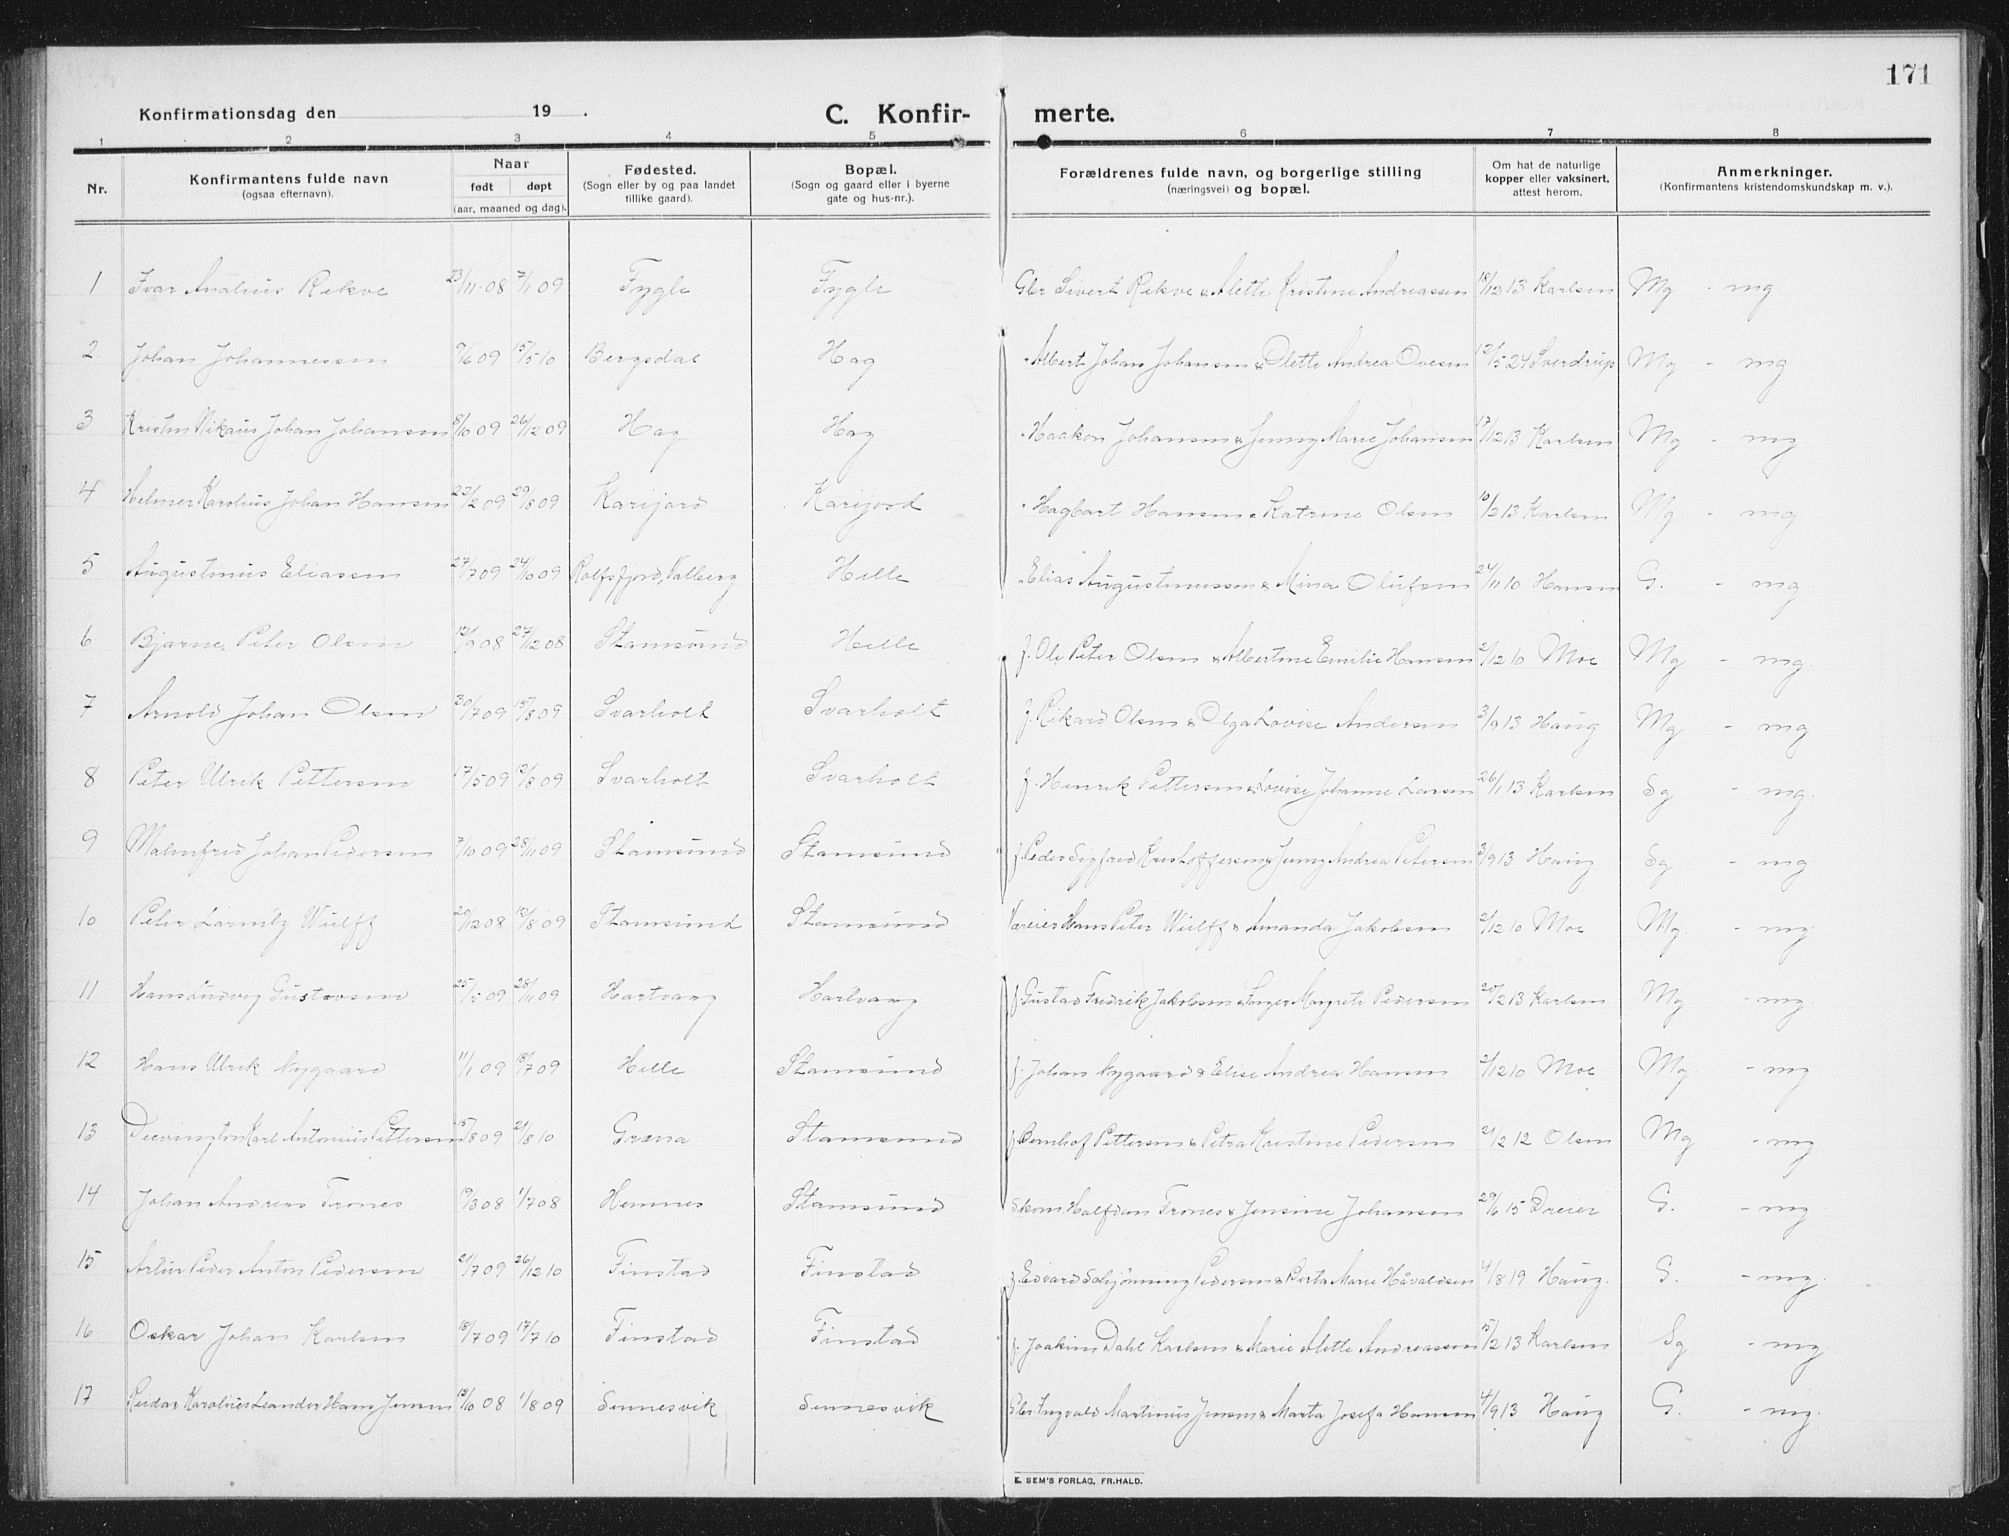 171
Konfirmationsdag den 19 .
C. Konfir- merte.
1 2 3 4 5 6 7 8
Nr.
Konfirmantens fulde navn
(ogsaa efternavn).
Naar
født døpt
(aar, maaned og dag).
Fødested.
(Sogn eller by og paa landet
tillike gaard).
Bopæl.
(Sogn og gaard eller i byerne
gate og hus-nr.).
Forældrenes fulde navn, og borgerlige stilling
(næringsvei) og bopæl.
Om hat de naturlige
kopper eller vaksinert,
attest herom.
Anmerkninger.
(Konfirmantens kristendomskundskap m. v.).
1 Ivar Analius Rekve 23/11-08 7/1 09 Fygle Fygle Gbr Sivert Rekve & Alette Kristine Andreassen 18/12 13 Karlsen Mg - mg
2 Johan Johannessen 9/6 09 15/5 10 Bergsdal Hag Albert Johan Johansen & Olette Andrea Ovesen 12/5 24 Sverdrup Mg - mg
3 Johan Johansen 8/10 09 26/12 09 Hag Hag Haakon Johansen & Jenny Marie Johansen 17/12 13 Karlsen Mg - mg
4 Helmer Karolius Johan Hansen 22/2 09 29/8 09 Karijord Karijord Hagbart Hansen & Katrine Olsen 10/2 13 Karlsen Mg - mg
5 Augustinus Eliassen 27/7 09 24/10 09 Rolfsfjord, Valberg Helle Elias Augustinussen & Mina Olufsen 24/11 10 Hansen G. - mg
6 Bjarne Peter Olsen 12/9 08 27/12 08 Stamsund Helle f. Ole Peter Olsen & Albertine Emilie Hansen 2/12 10 Moe Mg - mg.
7 Arnold Johan Olsen 30/7 09 15/8 09 Svarholt Svarholt f. Rikard Olsen & Olga Lovise Andersen 3/9 13 Haug Mg - mg.
8 Peter Ulrik Pettersen 17/5 09 12/8 09 Svarholt Svarholt f. Henrik Pettersen & Lovise Johanne Larsen 26/1 13 Karlsen Sg - mg.
9 Malmfred Johan Pedersen 7/10 09 28/11 09 Stamsund Stamsund f. Peder Sigfred Kristoffersen & Jenny Andrea Petersen 3/9 13 Haug Sg - mg.
10 Peter Wulff 20/12 08 12/8 09 Stamsund Stamsund Hans Peter Wulff & Amanda Jakobsen 2/12 10 Moe Mg. - mg
11 Hans Ludvig Gustavsen 25/5 09 28/11 09 Hartvang Hartvang f. Gustav Fredrik Jakobsen & Inger Margrete Pedersen 20/2 13 Karlsen Mg - mg.
12 Hans Ulrik Nygaard 11/1 09 18/7 09 Helle Stamsund f. Johan Nygaard & Elise Andrea Hansen 2/12 10 Moe Mg. - mg
13 Karl Antonius Pettersen 15/8 09 21/8 10 Græna Stamsund f Bernhof Pettersen & Petra Kristine Pedersen 21/2 12 Olsen Mg. - mg
14 Johan Andreas Trones 19/3 08 1/7 08 Hemnes Stamsund Skom Halfdan Trones & Jensine Johansen 29/6 15 Dreier G. - mg
15 Artur Peder Anton Pedersen 21/7 09 26/12 10 Finstad Finstad f. Edvard Schjønning Pedersen & Berta Marie Håvaldsen 4/8 19 Haug. G. - mg.
16 Oskar Johan Karlsen 18/7 09 17/7 10 Finstad Finstad f. Joakim Dahl Karlsen & Marie Alette Andreassen 15/2 13 Karlsen Sg - mg.
17 Reidar Karolius Leander Hans Jensen 18/10 08 1/8 09 Sennesvik Sennesvik Gbr. Ingvald Martinus Jensen & Marta Josefa Hansen 4/9 13 Haug G. - mg.
E. SEM'S FORLAG, FR.HALD.